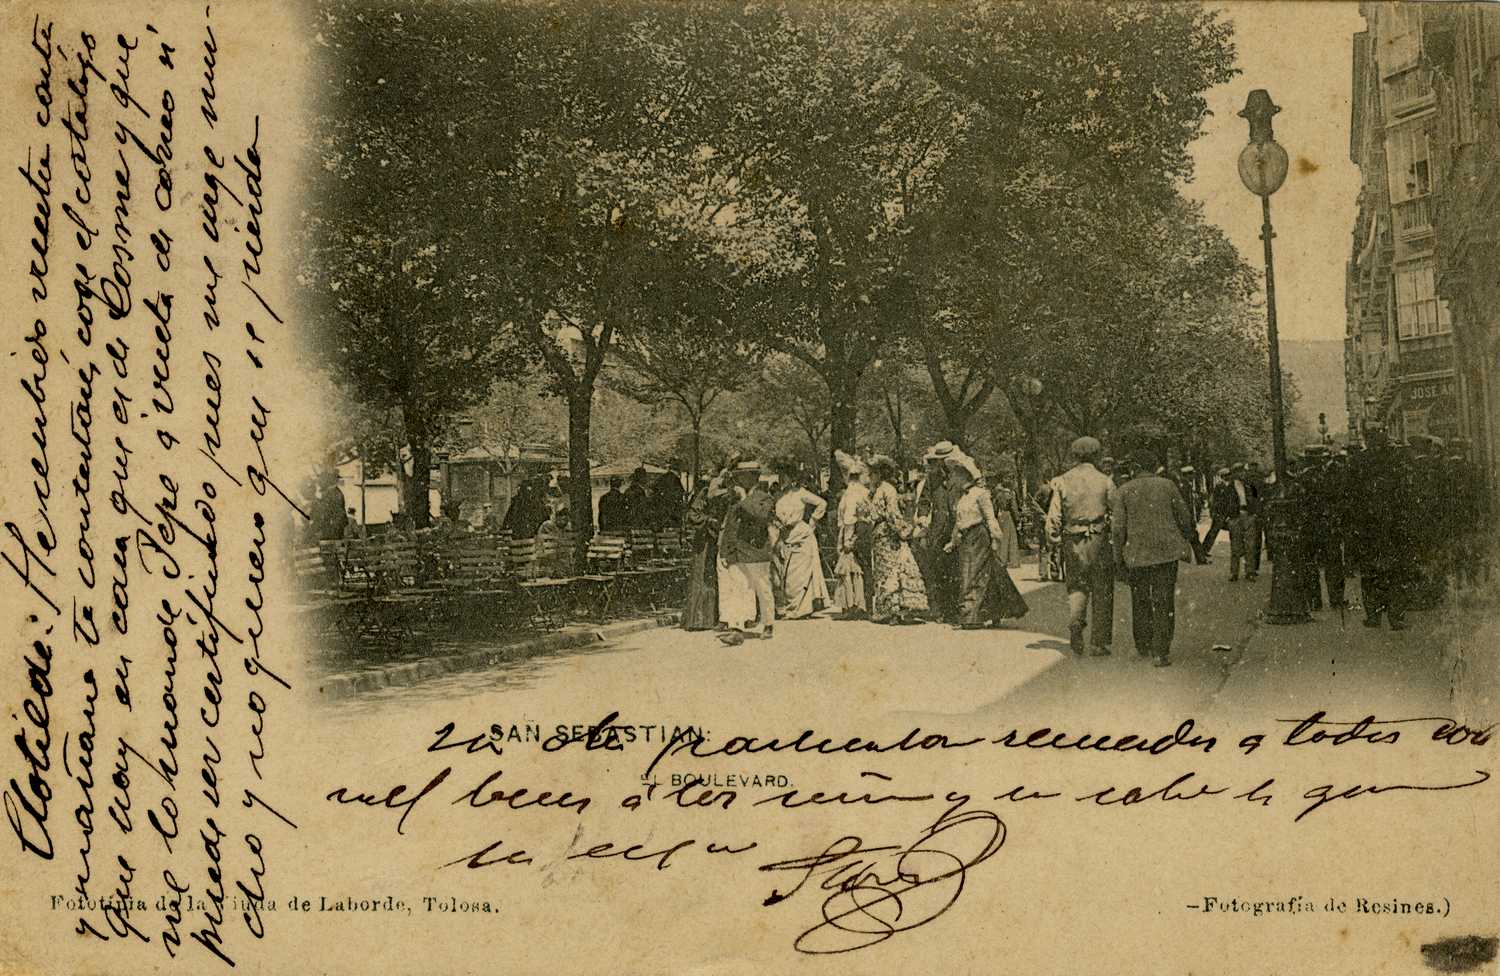 Clotilde: He recibido vuestra carta
y mañana te contestaré, coge el catalogo
que hay en casa que es de Cosme y que
me lo mande Pepe a vuelta de correo si
puede ser certificado pues me urge mu-
cho y no quiero que se pierda
SAN SEBASTIAN:
EL BOULEVARD.
sin otro particular recuerdos a todos con
mil besos a los niños y
JOSE
Fototipia de la Viuda de Laborde, Tolosa.
-Fotografía de Resines.)